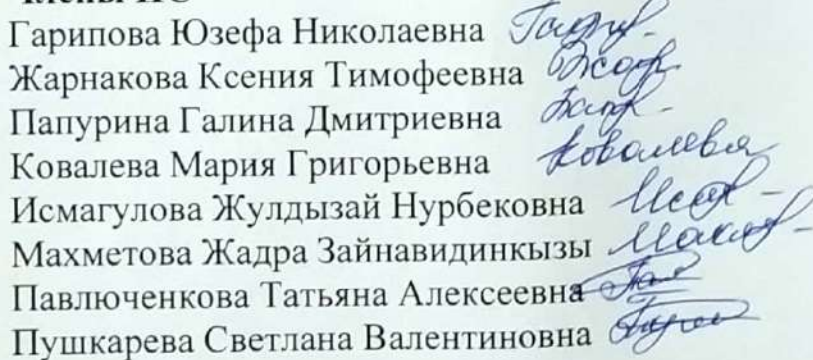 Гарипова Юзефа Николаевна
Жарнакова Ксения Тимофеевна
Папурина Галина Дмитриевна
Ковалева Мария Григорьевна Ковалева
Исмагулова Жулдызай Нурбековна
Махметова Жадра Зайнавидинкызы
Павлюченкова Татьяна Алексеевна
Пушкарева Светлана Валентиновна